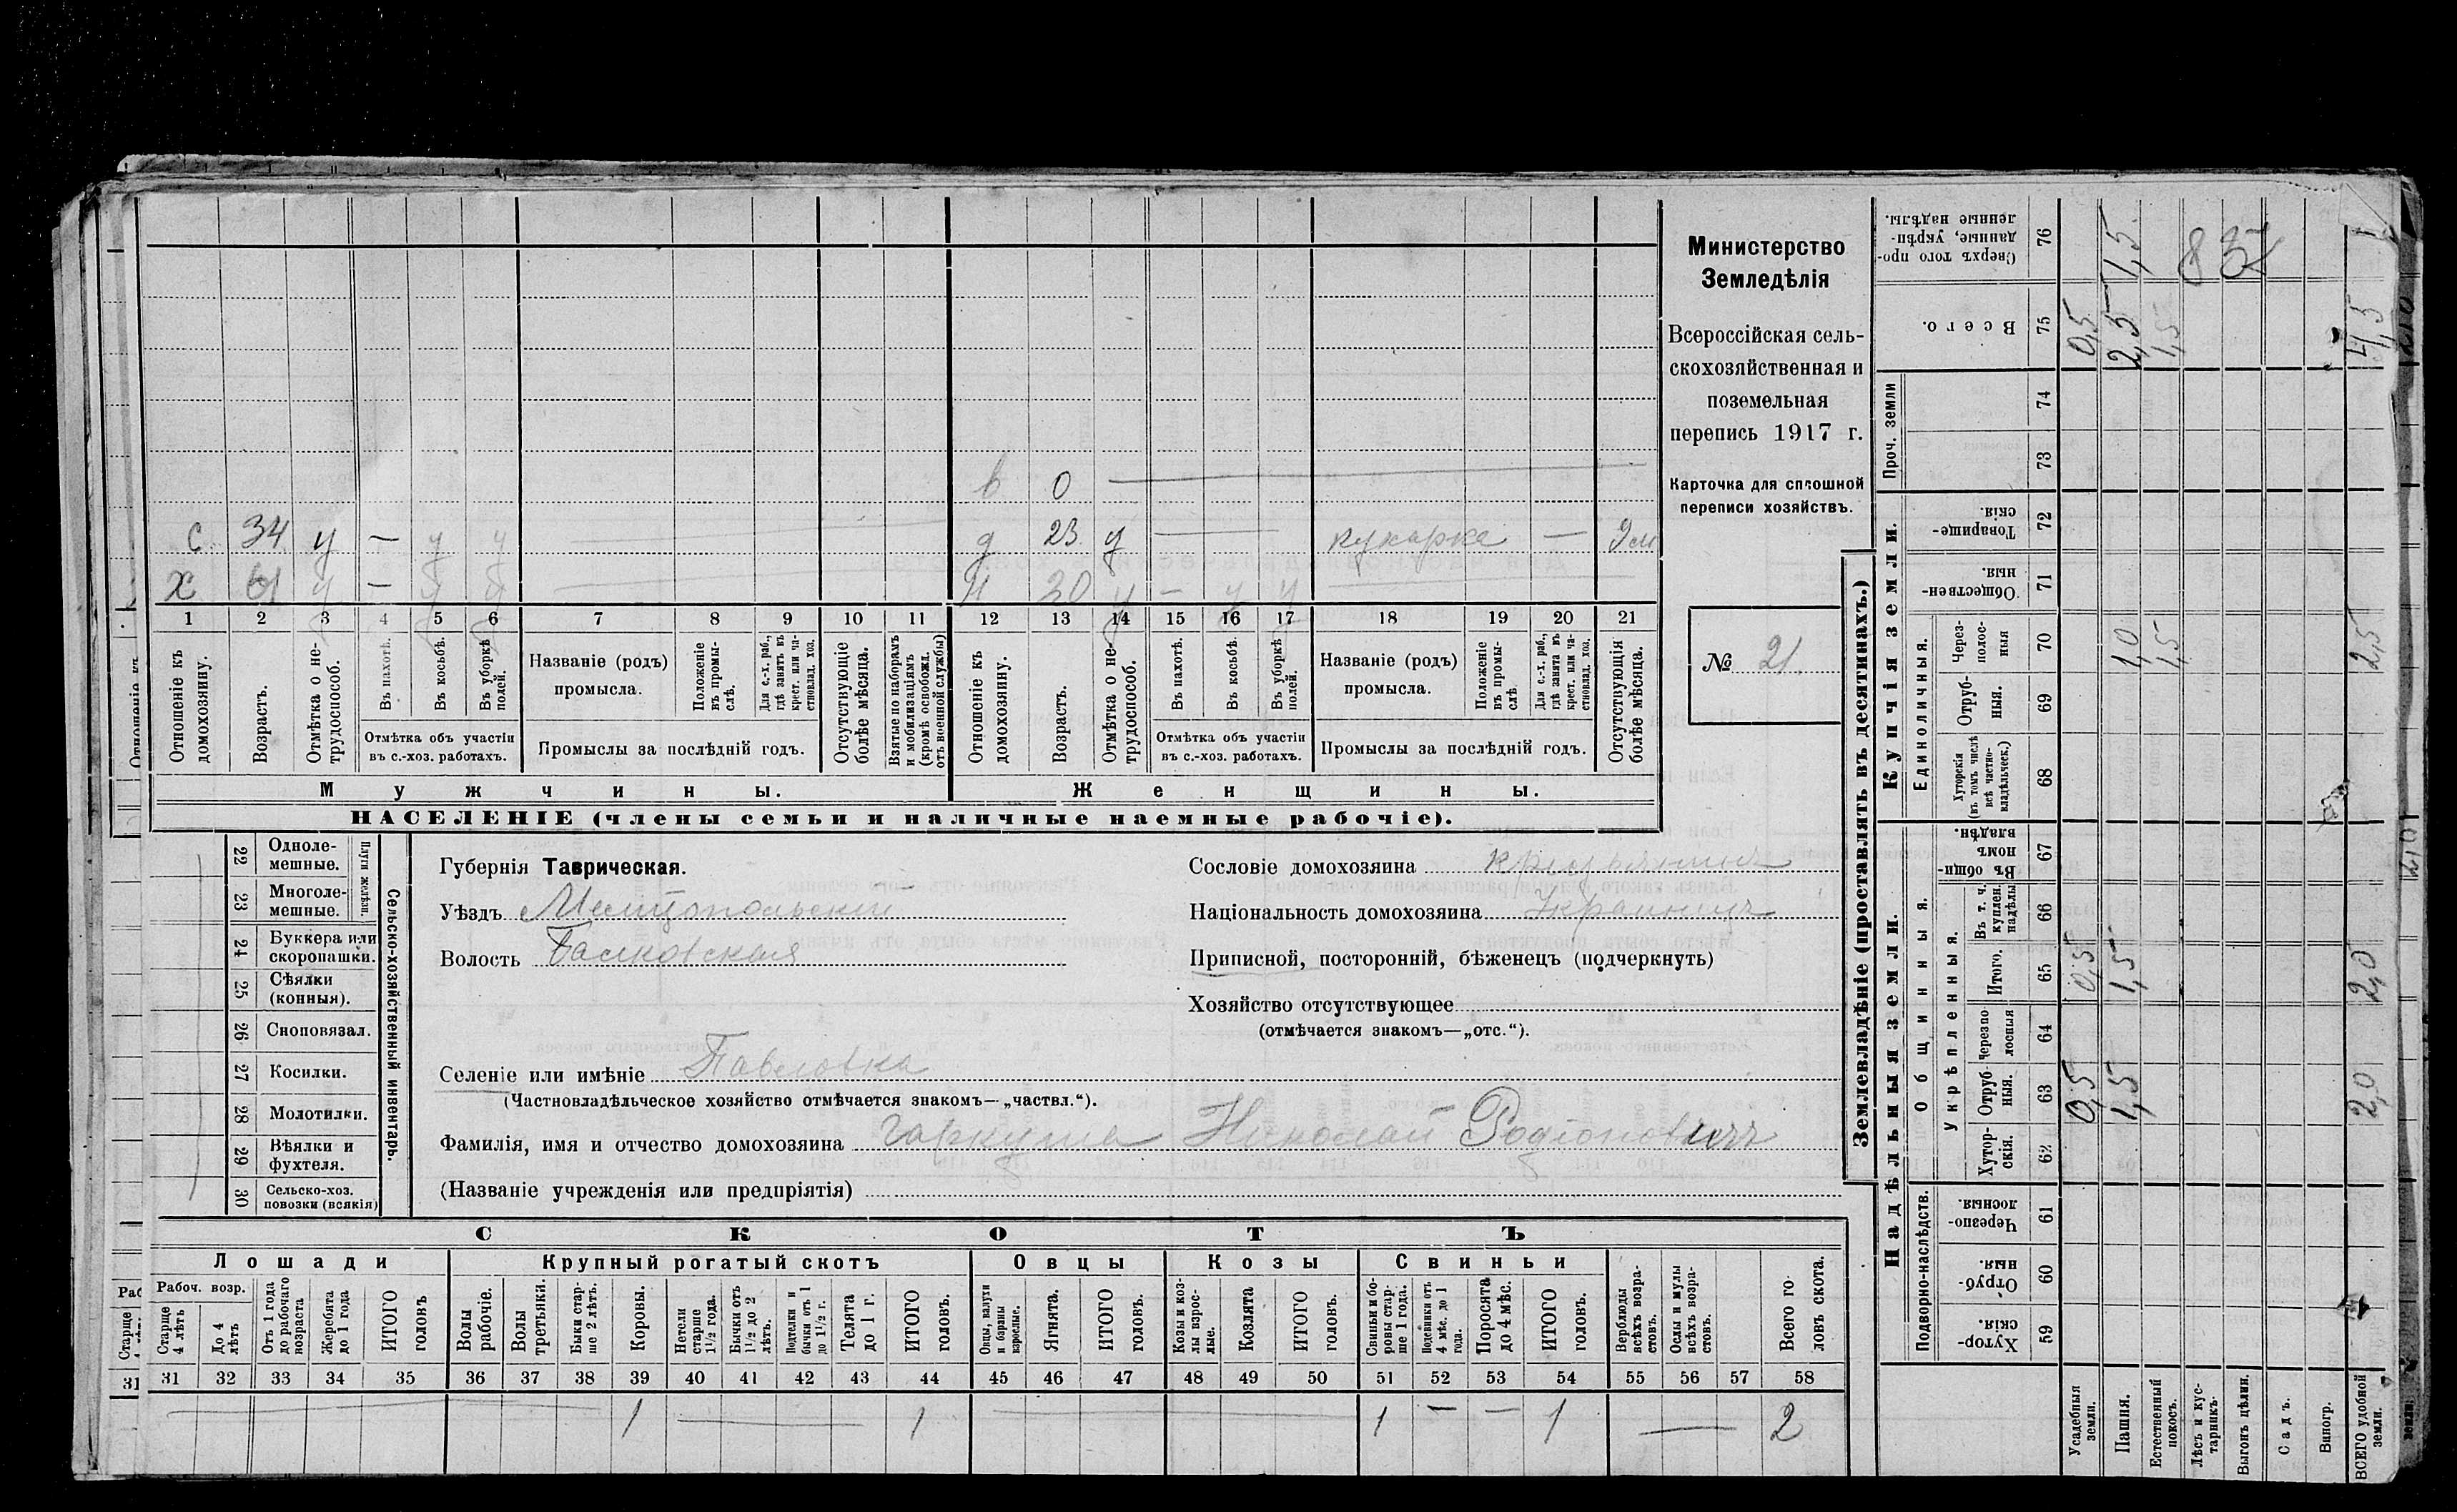 в 0 —
с 34 у — у у — д 23 у — кухарка — 9 м
х 61 у — у у — 30 у — у у —
1 2 3 4 5 6 7 8 9 10 11 12 13 14 15 16 17 18 19 20 21
Отношеніе къ домохозяину.
Возрастъ.
Отмѣтка о нетрудоспособ.
Въ пахотѣ.
Въ косьбѣ.
Въ уборкѣ полей.
Отмѣтка объ участіи въ с.-хоз. работахъ.
Названіе (родъ) промысла.
Положеніе въ промыслѣ.
Для с.-х. раб., гдѣ занятъ въ крест. или частновлад. хоз.
Промыслы за послѣдній годъ.
Отсутствующіе болѣе мѣсяца.
Взятые по наборамъ и мобилизаціямъ (кромѣ освобожд. отъ военной службы)
Отношеніе къ домохозяину.
Возрастъ.
Отмѣтка о нетрудоспособ.
Въ пахотѣ.
Въ косьбѣ.
Въ уборкѣ полей.
Отмѣтка объ участіи въ с.-хоз. работахъ.
Названіе (родъ) промысла.
Положеніе въ промыслѣ.
Для с.-х. раб., гдѣ занята въ крест. или частновлад. хоз.
Промыслы за послѣдній годъ.
Отсутствующія болѣе мѣсяца.
Мужчины. Женщины.
НАСЕЛЕНІЕ (члены семьи и наличные наемные рабочіе).
Министерство
Земледѣлія
Всероссійская сель-
скохозяйственная и
поземельная
перепись 1917 г.
Карточка для сплошной
переписи хозяйствъ.
№ 21
22 Одноле-
мешные.
23 Многоле-
мешные.
Плуги желѣзн.
24 Буккера или
скоропашки.
25 Сѣялки
(конныя).
26 Сноповязал.
27 Косилки.
28 Молотилки.
29 Вѣялки и
фухтеля.
30 Сельско-хоз.
повозки (всякія)
Сельско-хозяйственный инвентарь.
Губернія Таврическая.
Уѣздъ Мелитопольскій
Волость Балковская
Сословіе домохозяина крестьянинъ
Національность домохозяина Украинецъ
Приписной, посторонній, бѣженецъ (подчеркнуть)
Хозяйство отсутствующее
(отмѣчается знакомъ—„отс.“).
Селеніе или имѣніе Павловка
(Частновладѣльческое хозяйство отмѣчается знакомъ—„частвл.“).
Фамилія, имя и отчество домохозяина Гаркуша Николай Родіоновичъ
(Названіе учрежденія или предпріятія)
СКОТЪ
Лошади Крупный рогатый скотъ Овцы Козы Свиньи
Рабоч. возр.
Старше 4 лѣтъ
До 4 лѣтъ
Отъ 1 года до рабочаго возраста
Жеребята до 1 года
ИТОГО головъ
Волы рабочіе.
Волы третьяки.
Быки старше 2 лѣтъ.
Коровы.
Нетели старше 1½ года.
Бычки отъ 1½ до 2 лѣтъ.
Подтелки и бычки отъ 1 до 1½ г.
Телята до 1 г.
ИТОГО головъ.
Овцы, валухи и бараны взрослые.
Ягнята.
ИТОГО головъ.
Козы и козлы взрослые.
Козлята
ИТОГО головъ.
Свиньи и боровы старше 1 года.
Подсвинки отъ 4 мѣс. до 1 года.
Поросята до 4 мѣс.
ИТОГО головъ.
Верблюды всѣхъ возрастовъ.
Ослы и мулы всѣхъ возрастовъ.
Всего головъ скота.
31 32 33 34 35 36 37 38 39 40 41 42 43 44 45 46 47 48 49 50 51 52 53 54 55 56 57 58
1 — 1 — 1 — — 1 — 2
Землевладѣніе (проставлять въ десятинахъ.)
Надѣльныя земли. Купчія земли.
Подворно-наслѣдств.
Общинныя.
Укрѣпленныя.
Единоличныя.
Проч. земли
Сверхъ того проданные, укрѣпленные надѣлы. 76 1,5
Всего. 75 0,5 2,5 1,5 4,5
74
73
Товарищескія. 72
Общественныя. 71
Черезполосныя 70 1,0 1,5 2,5
Отрубныя. 69
Хуторскія (въ томъ числѣ всѣ частновладѣльческ.) 68
Въ общинномъ владѣн. 67
Въ т. ч. куплен. надѣлы 66
Итого. 65 0,5 1,5 2,0
Черезполосныя 64
Отрубныя. 63 0,5 1,5 2,0
Хуторскія. 62
Черезполосныя 61
Отрубныя. 60
Хуторскія. 59
Усадебныя земли.
Пашня.
Естественный покосъ.
Лѣсъ и кустарникъ.
Выгонъ цѣлин.
Садъ.
Виногр.
ВСЕГО удобной земли.